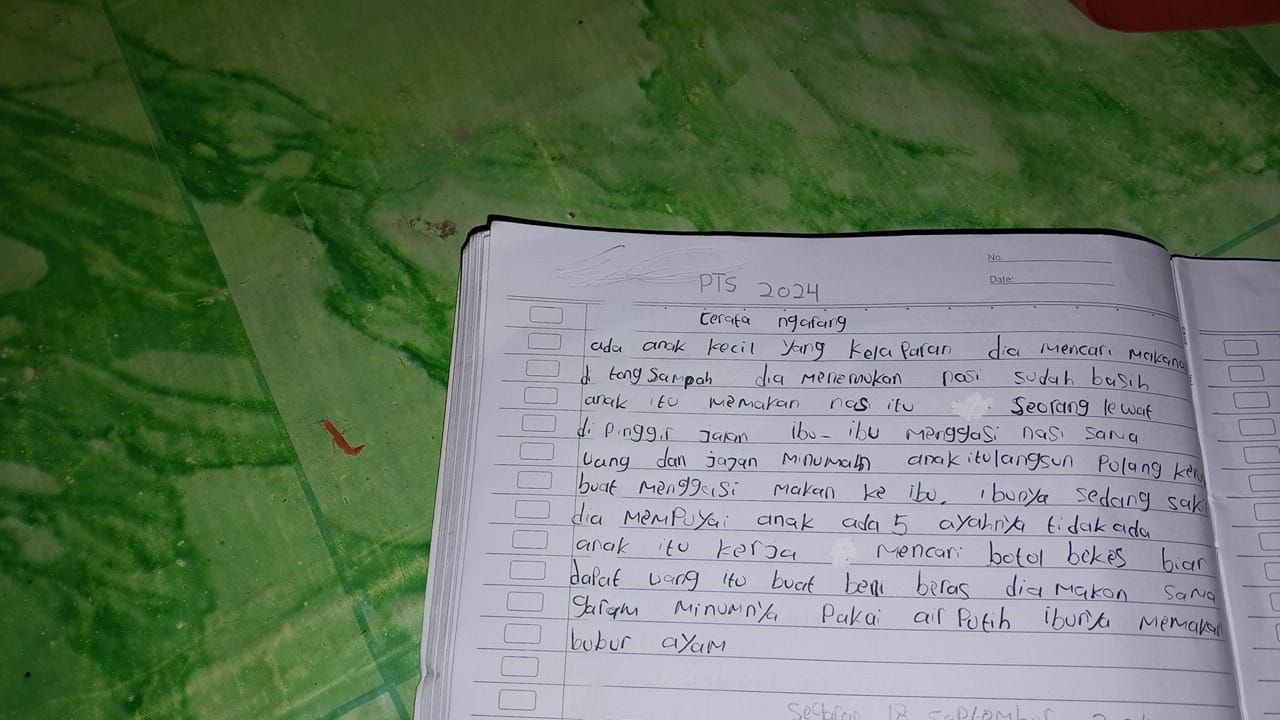 No.
Date:
PTS 2024
Cerata ngarang
ada anak kecil yang kelaparan dia mencari makana
di tong sampah dia menemukan nasi sudah basih
anak itu memakan nasi itu seorang lewat
di pinggir jalan ibu-ibu menggasi nasi sama
uang dan jajan minuman anak itu langsun pulang
buat menggasi makan ke ibu. ibunya sedang sak
dia mempuyai anak ada 5 ayahnya tidak ada
anak itu kerja mencari botol bekes biar
dapat uang itu buat beli beras dia makan sama
garam minumnya pakai air putih ibunya memakan
bubur ayam
18 september